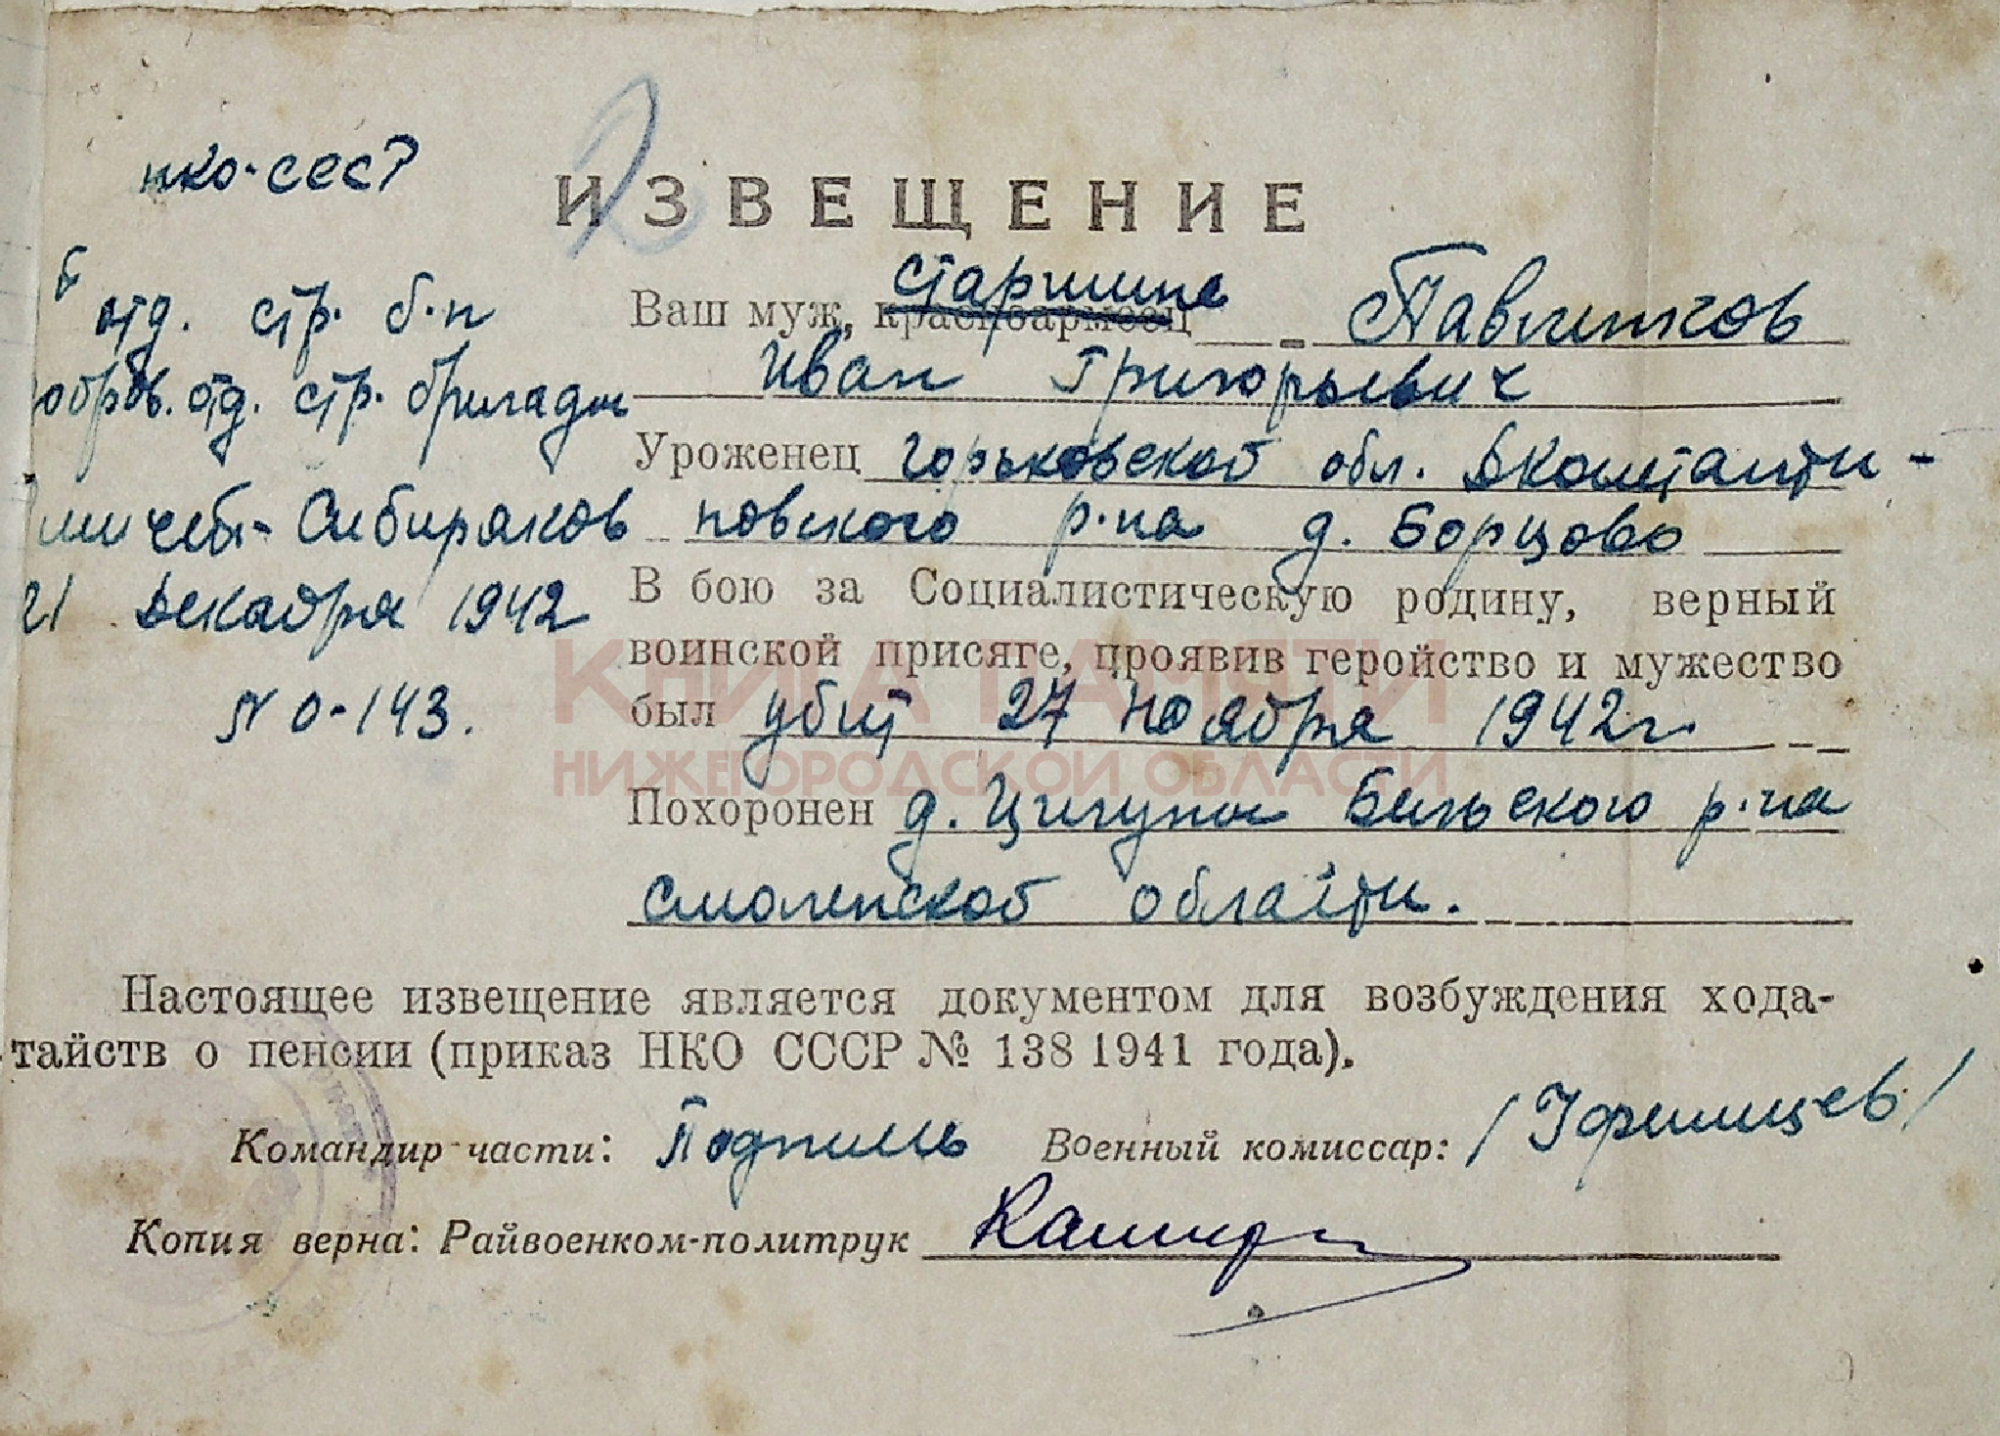 нко-ссср
ИЗВЕЩЕНИЕ
отд. стр. б-н
добров. отд. стр. бригады
Сибиряков
21 Декабря 1942
№ 0-143.
Ваш муж, красноармеец старшина Павлитков
Иван Григорьевич
Уроженец Горьковской обл. Дконстанти-
новского р-на д. Борцово
В бою за Социалистическую родину, верный
воинской присяге, проявив геройство и мужество
был убит 27 Ноября 1942г.
Похоронен д. Цигуны Бельского р-на
Смоленской области.
КНИГА ПАМЯТИ
НИЖЕГОРОДСКОЙ ОБЛАСТИ
Настоящее извещение является документом для возбуждения хода-
тайств о пенсии (приказ НКО СССР № 138 1941 года).
Командир части: Подпись Военный комиссар:
Копия верна: Райвоенком-политрук